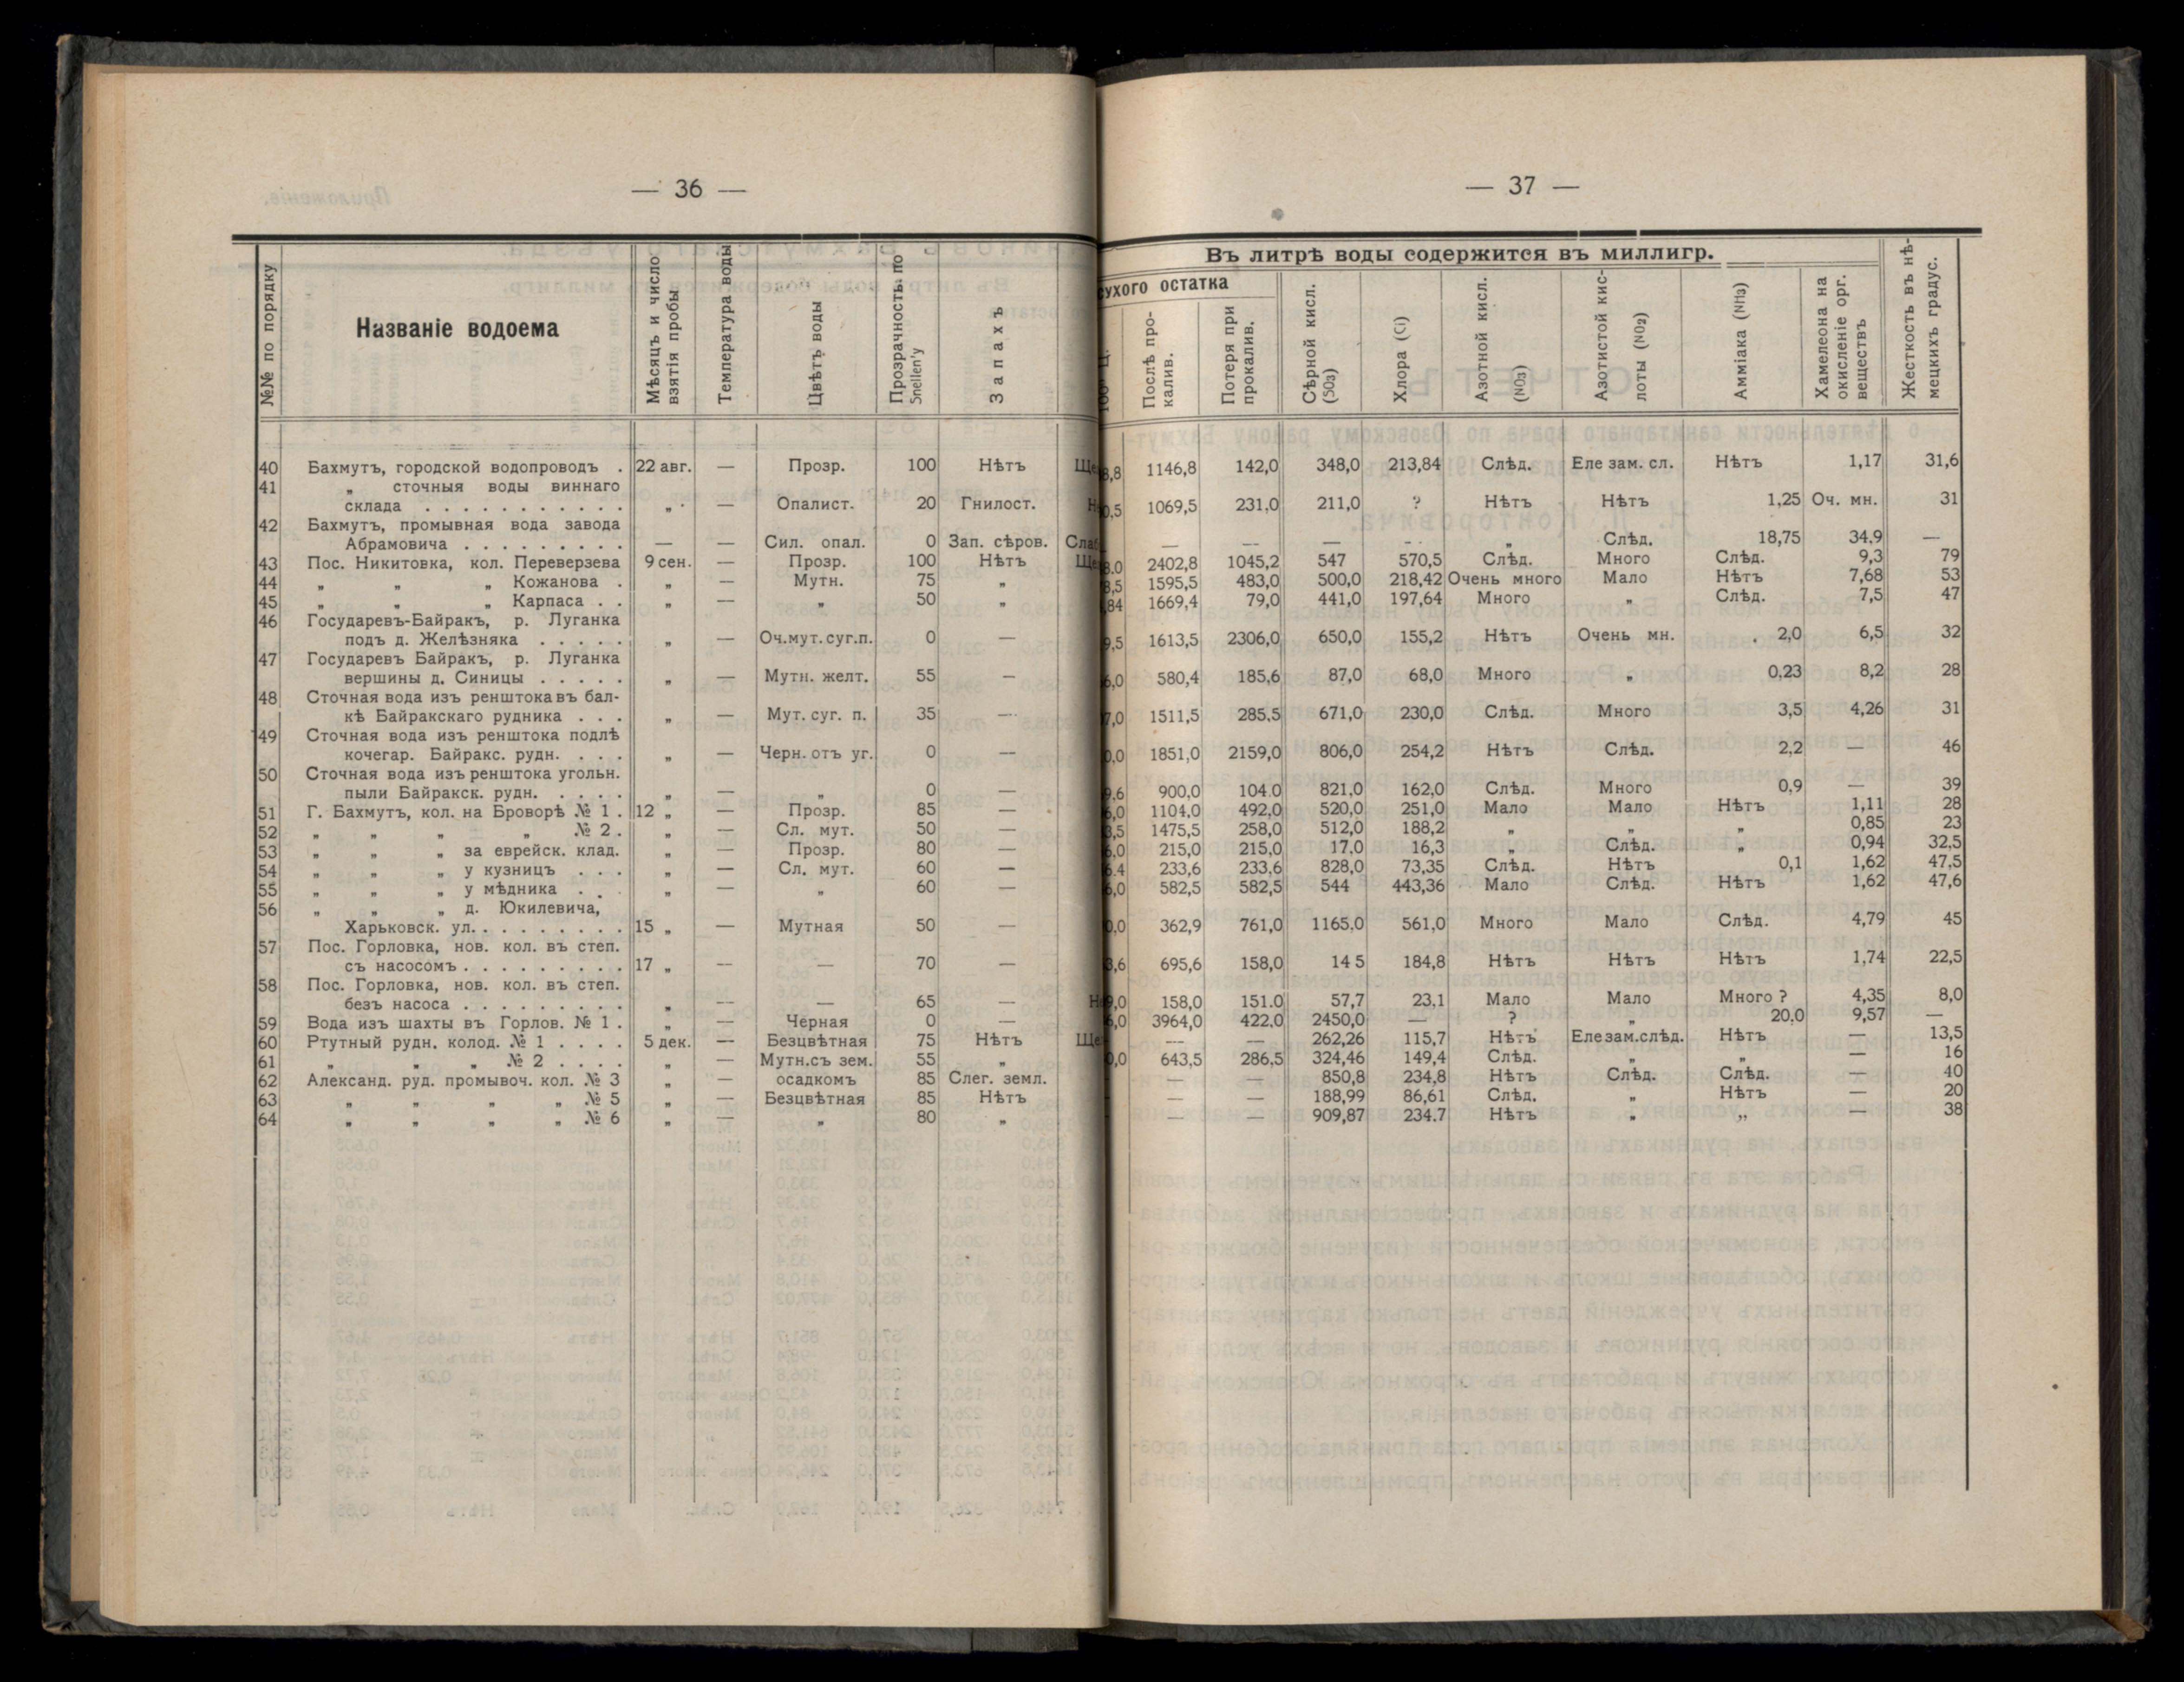 — 36 —
№№ по порядку
Названіе водоема
Мѣсяцъ и число взятія пробы
Температура воды
Цвѣтъ воды
Прозрачность по Snellen'у
Запахъ
40 Бахмутъ, городской водопроводъ . 22 авг. — Прозр. 100 Нѣтъ
41 „ сточныя воды виннаго
склада . . . . . . . . . . . „ — Опалист. 20 Гнилост.
42 Бахмутъ, промывная вода завода
Абрамовича . . . . . . . . . — — Сил. опал. 0 Зап. сѣров.
43 Пос. Никитовка, кол. Переверзева 9 сен. — Прозр. 100 Нѣтъ
44 „ „ „ Кожанова . „ — Мутн. 75 „
45 „ „ „ Карпаса . . „ — „ 50 „
46 Государевъ-Байракъ, р. Луганка
подъ д. Желѣзняка . . . . . „ — Оч.мут.суг.п. 0 —
47 Государевъ Байракъ, р. Луганка
вершины д. Синицы . . . . . „ — Мутн. желт. 55 —
48 Сточная вода изъ ренштока въ бал-
кѣ Байракскаго рудника . . . „ — Мут. суг. п. 35 —
49 Сточная вода изъ ренштока подлѣ
кочегар. Байракс. рудн. . . . „ — Черн. отъ уг. 0 —
50 Сточная вода изъ ренштока угольн.
пыли Байракск. рудн. . . . . „ — „ 0 —
51 Г. Бахмутъ, кол. на Броворѣ № 1 . 12 „ — Прозр. 85 —
52 „ „ „ „ № 2 . „ — Сл. мут. 50 —
53 „ „ „ за еврейск. клад. „ — Прозр. 80 —
54 „ „ „ у кузницъ . . . „ — Сл. мут. 60 —
55 „ „ „ у мѣдника . . . „ — „ 60 —
56 „ „ „ д. Юкилевича,
Харьковск. ул. . . . . . . . . 15 „ — Мутная 50 —
57 Пос. Горловка, нов. кол. въ степ.
съ насосомъ . . . . . . . . . 17 „ — — 70 —
58 Пос. Горловка, нов. кол. въ степ.
безъ насоса . . . . . . . . . „ — — 65 —
59 Вода изъ шахты въ Горлов. № 1 . „ — Черная 0 —
60 Ртутный рудн. колод. № 1 . . . . 5 дек. — Безцвѣтная 75 Нѣтъ
61 „ „ „ № 2 . . . . „ — Мутн.съ зем. 55 „
62 Александ. руд. промывоч. кол. № 3 „ — осадкомъ 85 Слег. земл.
63 „ „ „ „ № 5 „ — Безцвѣтная 85 Нѣтъ
64 „ „ „ „ № 6 „ — „ 80 „
— 37 —
Въ литрѣ воды содержится въ миллигр.
сухого остатка
Послѣ прокалив.
Потеря при прокалив.
Сѣрной кисл. (SO3)
Хлора (Cl)
Азотной кисл. (NO3)
Азотистой кислоты (NO2)
Амміака (NH3)
Хамелеона на окисленіе орг. веществъ
Жесткость въ нѣмецкихъ градус.
1146,8 142,0 348,0 213,84 Слѣд. Еле зам. сл. Нѣтъ 1,17 31,6
1069,5 231,0 211,0 ? Нѣтъ Нѣтъ 1,25 Оч. мн. 31
— — — — „ Слѣд. 18,75 34,9 —
2402,8 1045,2 547 570,5 Слѣд. Много Слѣд. 9,3 79
1595,5 483,0 500,0 218,42 Очень много Мало Нѣтъ 7,68 53
1669,4 79,0 441,0 197,64 Много „ Слѣд. 7,5 47
1613,5 2306,0 650,0 155,2 Нѣтъ Очень мн. 2,0 6,5 32
580,4 185,6 87,0 68,0 Много „ 0,23 8,2 28
1511,5 285,5 671,0 230,0 Слѣд. Много 3,5 4,26 31
1851,0 2159,0 806,0 254,2 Нѣтъ Слѣд. 2,2 — 46
900,0 104,0 821,0 162,0 Слѣд. Много 0,9 — 39
1104,0 492,0 520,0 251,0 Мало Мало Нѣтъ 1,11 28
1475,5 258,0 512,0 188,2 „ „ „ 0,85 23
215,0 215,0 17,0 16,3 „ Слѣд. „ 0,94 32,5
233,6 233,6 828,0 73,35 Слѣд. Нѣтъ 0,1 1,62 47,5
582,5 582,5 544 443,36 Мало Слѣд. Нѣтъ 1,62 47,6
362,9 761,0 1165,0 561,0 Много Мало Слѣд. 4,79 45
695,6 158,0 14 5 184,8 Нѣтъ Нѣтъ Нѣтъ 1,74 22,5
158,0 151,0 57,7 23,1 Мало Мало Много ? 4,35 8,0
3964,0 422,0 2450,0 — ? „ 20,0 9,57 —
— — 262,26 115,7 Нѣтъ Еле зам.слѣд. Нѣтъ — 13,5
643,5 286,5 324,46 149,4 Слѣд. „ „ — 16
— — 850,8 234,8 Нѣтъ Слѣд. Слѣд. — 40
— — 188,99 86,61 Слѣд. „ Нѣтъ — 20
— — 909,87 234,7 Нѣтъ „ „ — 38